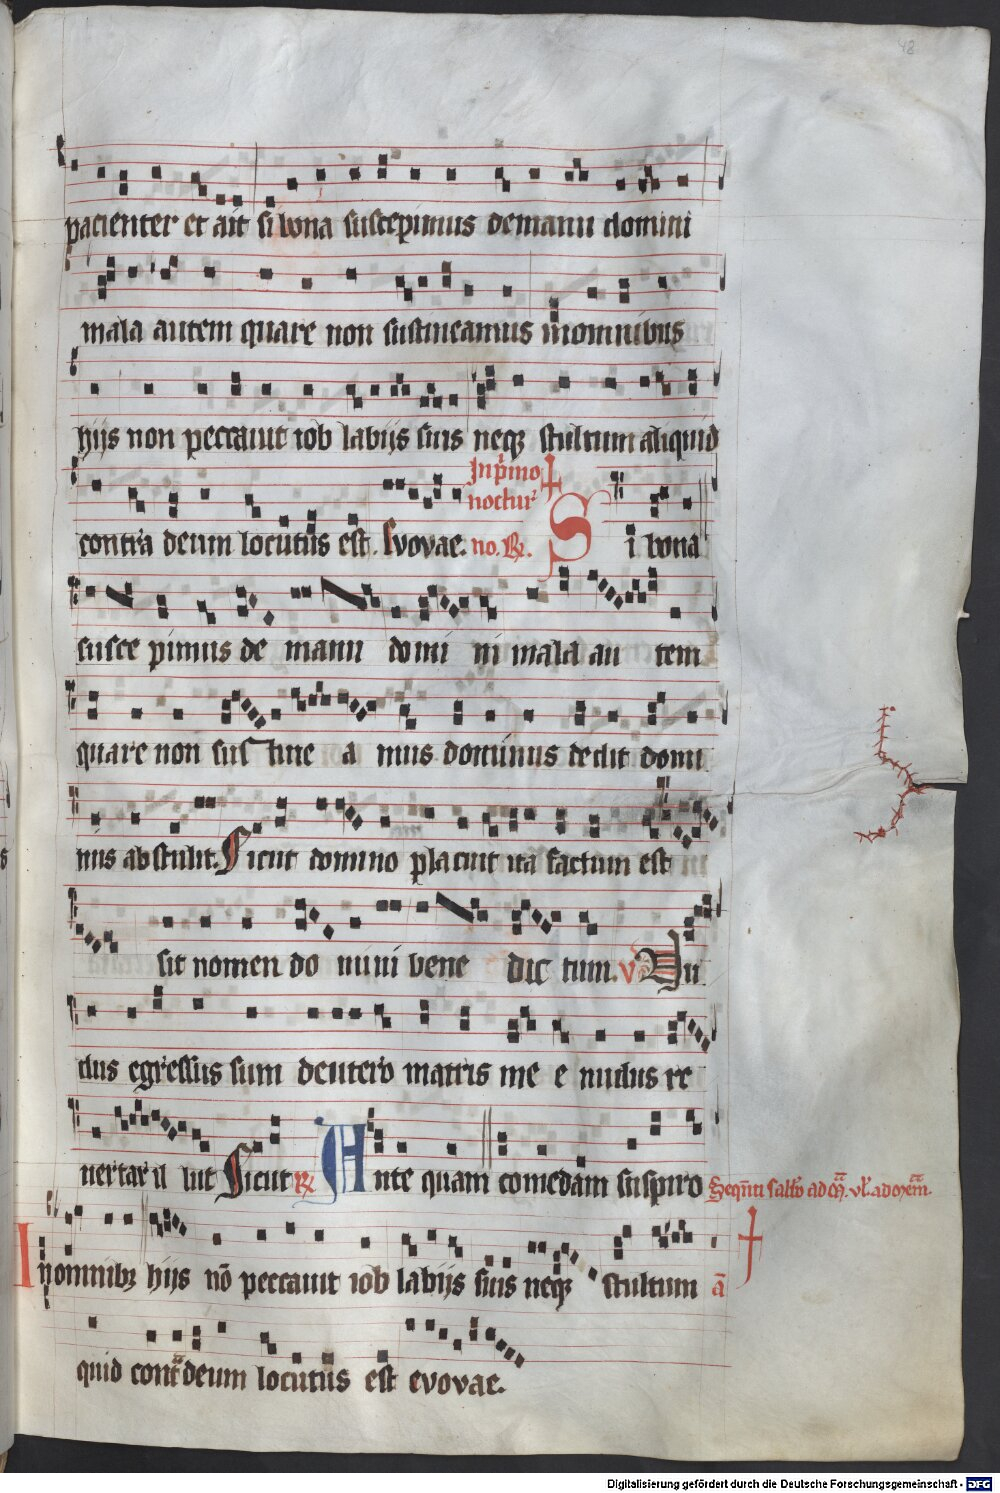 48
pacienter et ait si bona suscepimus de manu domini
mala autem quare non sustineamus in omnibus
hiis non peccauit iob labiis suis neqꝫ stultum aliquid
In p̄mo
noctur̄
contra deum locutus est. Evovae. no. R̄. Si bona
susce pimus de manu domi ni mala au tem
quare non sus tine a mus dominus dedit domi
nus abstulit. Sicut domino placuit ita factum est
sit nomen do mini bene dic tum. V Nu
dus egressus sum de utero matris me e nudus re
uertar il luc Sicut R̄ Ante quam comedam suspiro
In omnibꝫ hiis nō peccauit iob labiis suis neqꝫ stultum a
quid contᵃ deum locutus est evovae.
Digitalisierung gefördert durch die Deutsche Forschungsgemeinschaft - DFG